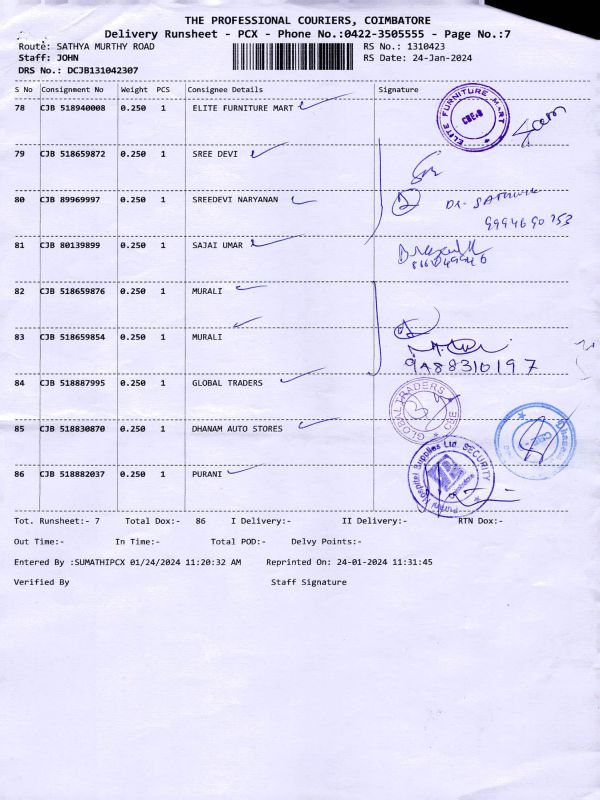 THE PROFESSIONAL COURIERS, COIMBATORE
Delivery Runsheet - PCX - Phone No.:0422-3505555 - Page No.:7
Route: SATHYA MURTHY ROAD RS No.: 1310423
Staff: JOHN RS Date: 24-Jan-2024
DRS No.: DCJB131042307
S No Consignment No Weight PCS Consignee Details Signature
78 CJB 518940008 0.250 1 ELITE FURNITURE MART
ELITE FURNITURE MART
79 CJB 518659872 0.250 1 SREE DEVI
80 CJB 89969997 0.250 1 SREEDEVI NARYANAN
2
9994690753
81 CJB 80139899 0.250 1 SAJAI UMAR
82 CJB 518659876 0.250 1 MURALI
83 CJB 518659854 0.250 1 MURALI
9488310197
84 CJB 518887995 0.250 1 GLOBAL TRADERS
GLOBAL TRADERS
85 CJB 518830870 0.250 1 DHANAM AUTO STORES
86 CJB 518882037 0.250 1 PURANI
Hospital Supplies Ltd. SECURITY
Tot. Runsheet:- 7 Total Dox:- 86 I Delivery:- II Delivery:- RTN Dox:-
Out Time:- In Time:- Total POD:- Delvy Points:-
Entered By :SUMATHIPCX 01/24/2024 11:20:32 AM Reprinted On: 24-01-2024 11:31:45
Verified By Staff Signature